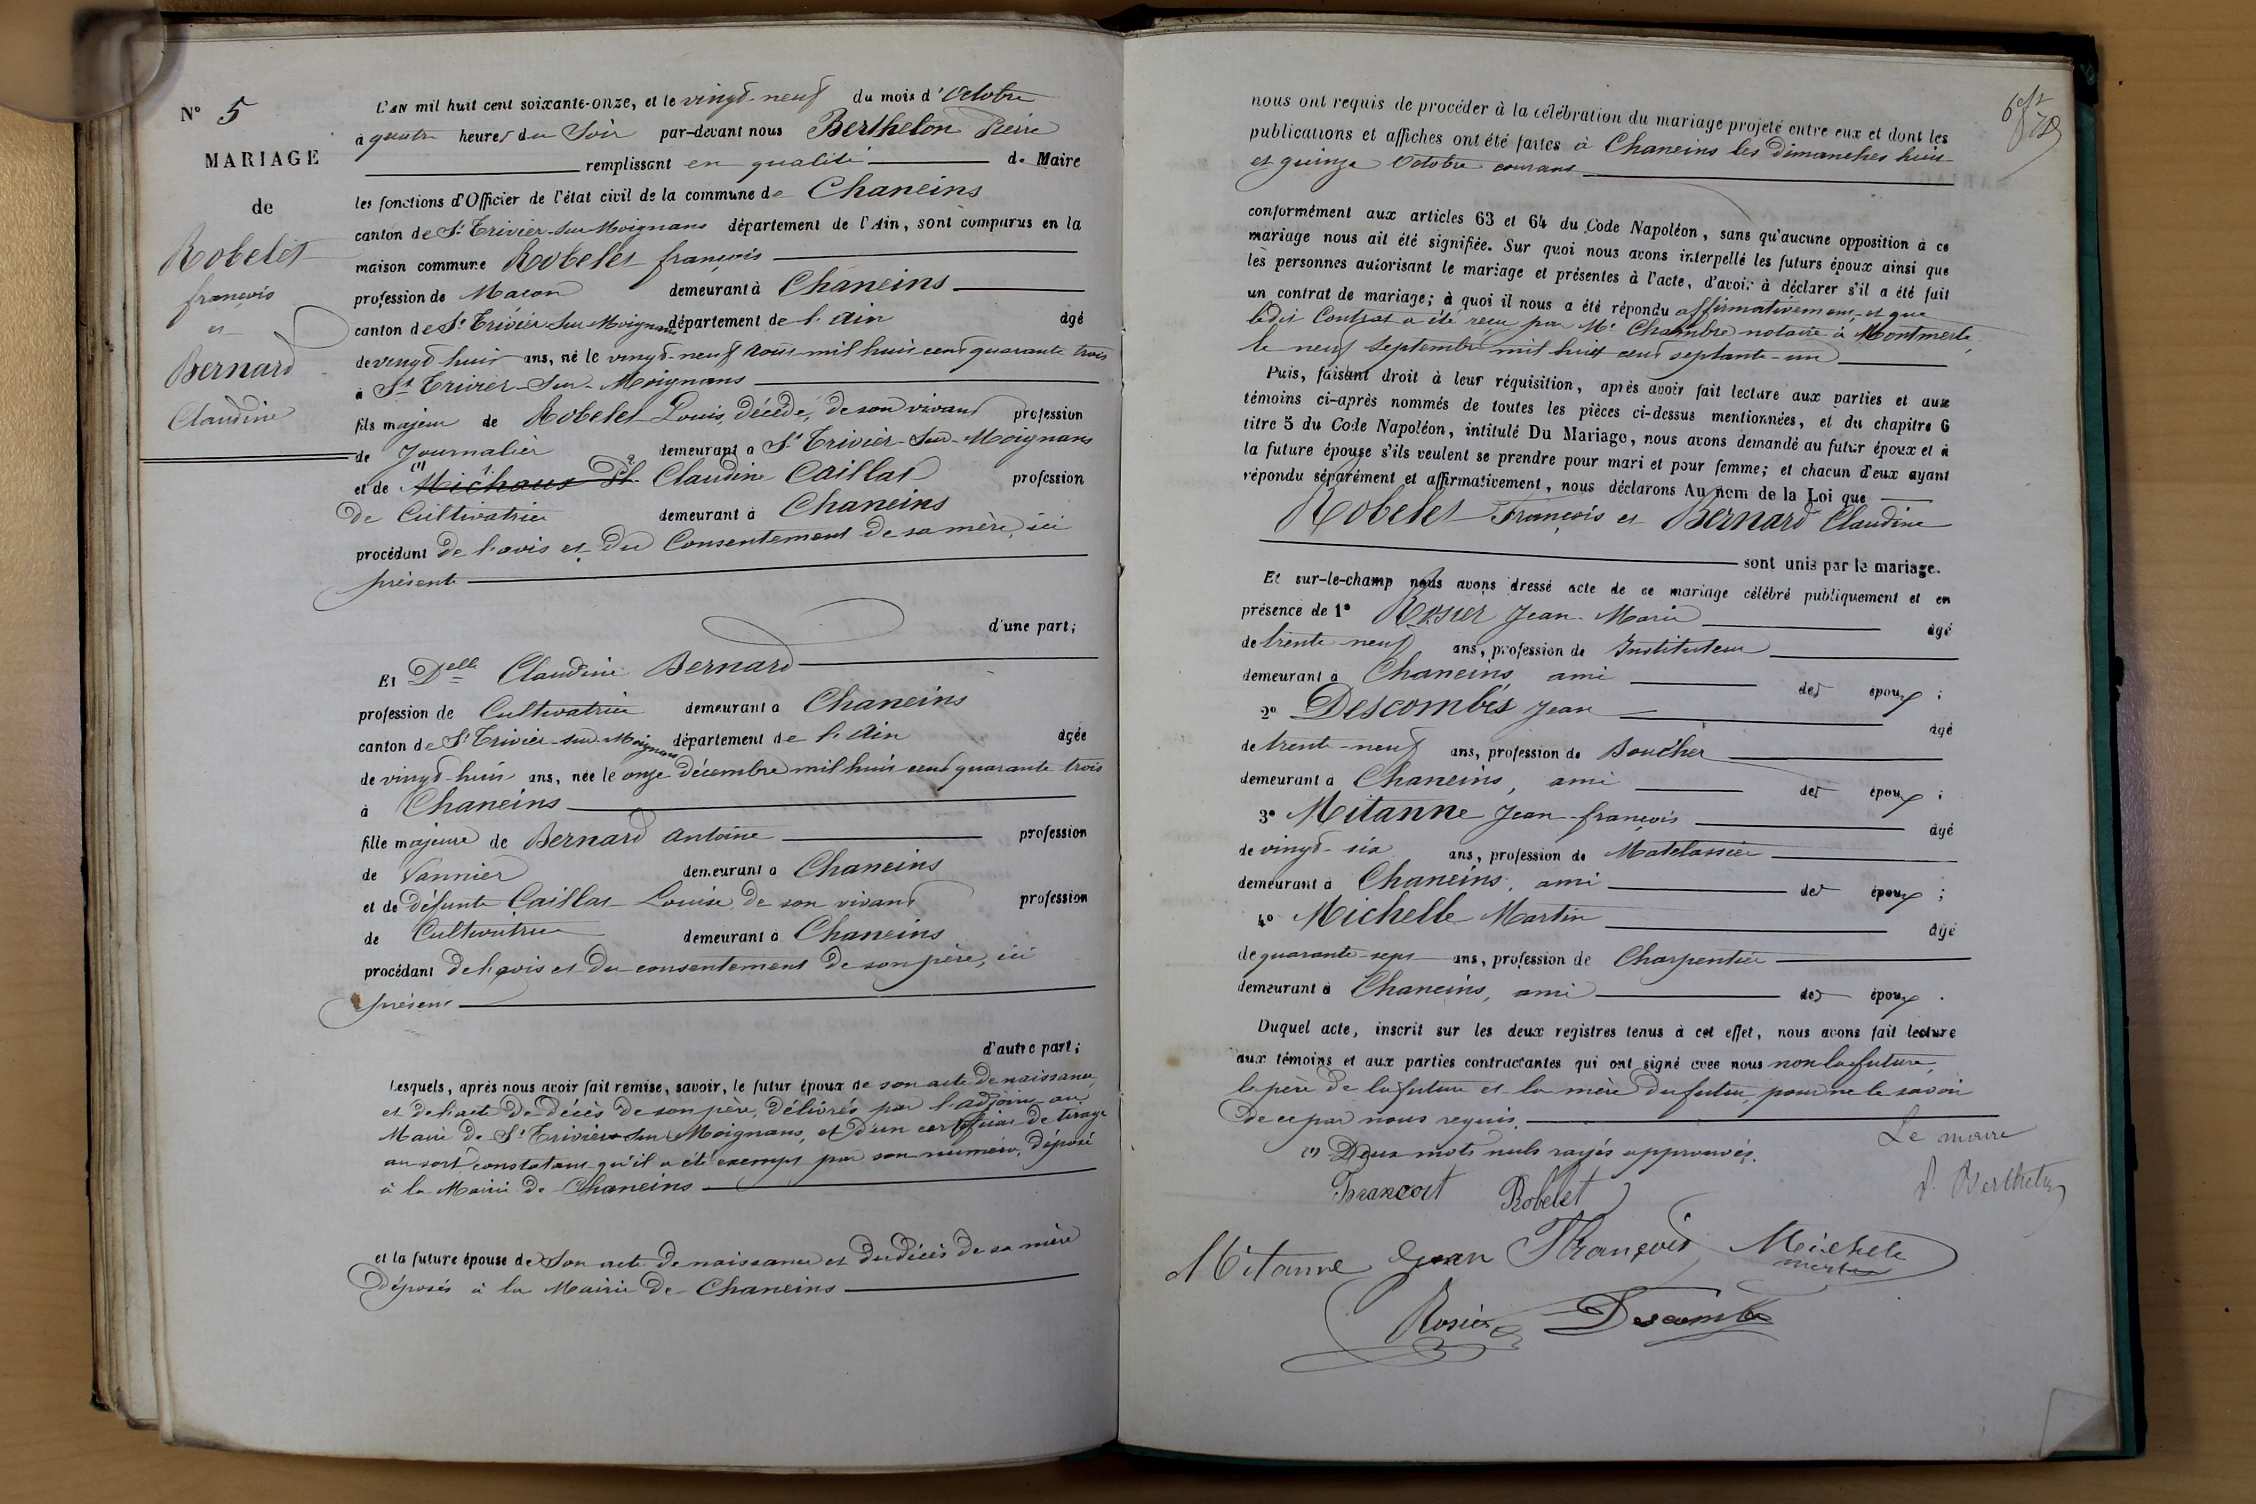 N° 5
MARIAGE
de
Robelet
françois
et
Bernard
Claudine
L'AN mil huit cent soixante-onze, et le vingt-neuf du mois d'Octobre
à quatre heures du Soir par-devant nous Berthelon Pierre
remplissant en qualité de Maire
les fonctions d'Officier de l'état civil de la commune de Chaneins
canton de St Trivier-sur-Moignans département de l'Ain, sont comparus en la
maison commune Robelet françois
profession de Maçon demeurant à Chaneins
canton de St Trivier-sur-Moignans département de l'Ain âgé
de vingt-huit ans, né le vingt-neuf Août mil huit cent quarante trois
à St Trivier-sur-Moignans
fils majeur de Robelet Louis, décédé, de son vivant profession
de Journalier demeurant à St Trivier-sur-Moignans
et de (1) Michaus Pl Claudine Caillat profession
de Cultivatrice demeurant à Chaneins
procédant de l'avis et du Consentement de sa mère, ici
présente
d'une part;
Et Delle Claudine Bernard
profession de Cultivatrice demeurant à Chaneins
canton de St Trivier-sur-Moignans département de l'Ain âgée
de vingt-huit ans, née le onze décembre mil huit cent quarante trois
à Chaneins
fille majeure de Bernard Antoine profession
de Vannier demeurant à Chaneins
et de défunte Caillat Louise de son vivant profession
de Cultivatrice demeurant à Chaneins
procédant de l'avis et du consentement de son père, ici
présent
d'autre part;
Lesquels, après nous avoir fait remise, savoir, le futur époux de son acte de naissance,
et de l'acte de décès de son père, délivrés par l'adjoint au
Maire de St Trivier-sur-Moignans, et d'un certificat de tirage
au sort constatant qu'il a été exempt par son numéro, déposé
à la Mairie de Chaneins
et la future épouse de Son acte de naissance et du décès de sa mère
déposés à la Mairie de Chaneins
nous ont requis de procéder à la célébration du mariage projeté entre eux et dont les
publications et affiches ont été faites à Chaneins les dimanches huit
et quinze Octobre courant
conformément aux articles 63 et 64 du Code Napoléon, sans qu'aucune opposition à ce
mariage nous ait été signifiée. Sur quoi nous avons interpellé les futurs époux ainsi que
les personnes autorisant le mariage et présentes à l'acte, d'avoir à déclarer s'il a été fait
un contrat de mariage; à quoi il nous a été répondu affirmativement, et que
ledit Contrat a été reçu par Me Chambre notaire à Montmerle,
le neuf Septembre mil huit cent septante-un
Puis, faisant droit à leur réquisition, après avoir fait lecture aux parties et aux
témoins ci-après nommés de toutes les pièces ci-dessus mentionnées, et du chapitre 6
titre 5 du Code Napoléon, intitulé Du Mariage, nous avons demandé au futur époux et à
la future épouse s'ils veulent se prendre pour mari et pour femme; et chacun d'eux ayant
répondu séparément et affirmativement, nous déclarons Au nom de la Loi que
Robelet François et Bernard Claudine
sont unis par le mariage.
Et sur-le-champ nous avons dressé acte de ce mariage célébré publiquement et en
présence de 1° Rosier Jean-Marie âgé
de trente-neuf ans, profession de Instituteur
demeurant à Chaneins ami des époux;
2° Descombes Jean âgé
de trente-neuf ans, profession de Boucher
demeurant à Chaneins, ami des époux;
3° Mitanne Jean-françois âgé
de vingt-six ans, profession de Matelassier
demeurant à Chaneins, ami des époux;
4° Michelle Martin âgé
de quarante-sept ans, profession de Charpentier
demeurant à Chaneins, ami des époux.
Duquel acte, inscrit sur les deux registres tenus à cet effet, nous avons fait lecture
aux témoins et aux parties contractantes qui ont signé avec nous non la future,
le père de la future et la mère du futur, pour ne le savoir
de ce par nous requis.
(1) Deux mots nuls rayés approuvés.
Le maire
P. Berthelon
Francort Robelet
Mitanne Jean François Michele
martin
Rosier Descombe